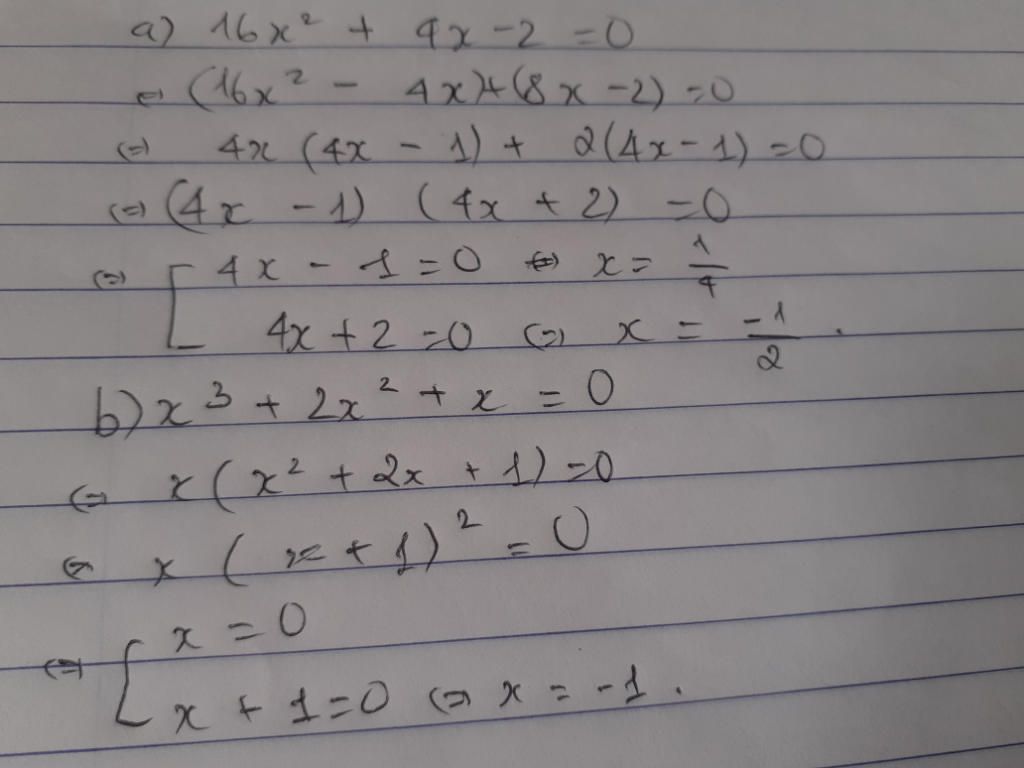 a) 16x² + 4x - 2 = 0
⇔ (16x² - 4x) + (8x - 2) = 0
⇔ 4x (4x - 1) + 2(4x - 1) = 0
⇔ (4x - 1) (4x + 2) = 0
⇔ [ 4x - 1 = 0 ⇔ x = 1/4
4x + 2 = 0 ⇔ x = -1/2 .
b) x³ + 2x² + x = 0
⇔ x (x² + 2x + 1) = 0
⇔ x (x + 1)² = 0
⇔ [ x = 0
x + 1 = 0 ⇔ x = -1 .